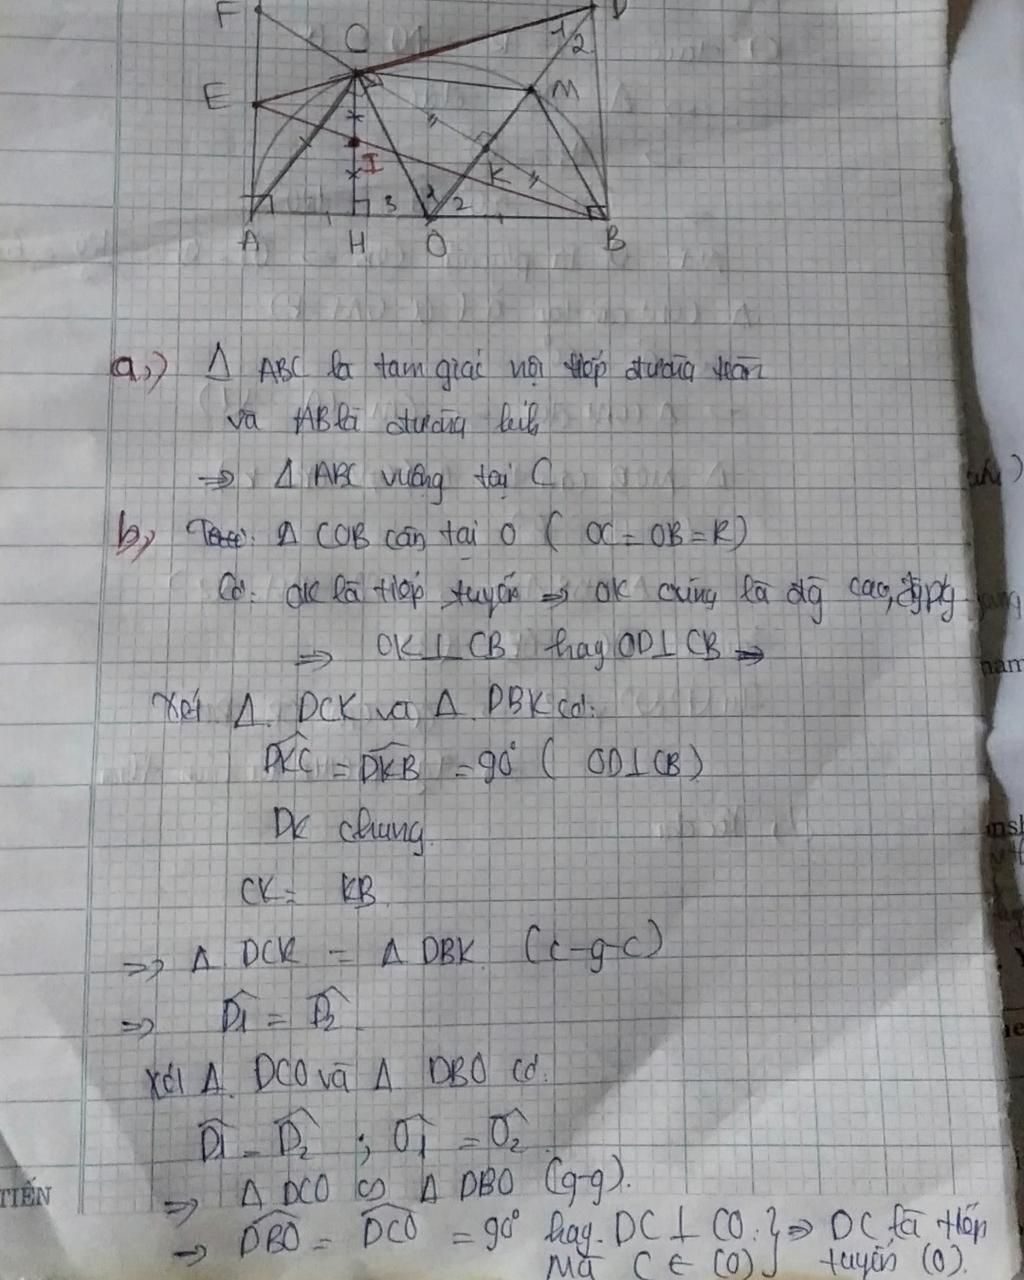 F
C
1 2
E
M
I
K
3 1 2
A H O B
a,) Δ ABC là tam giác nội tiếp đường tròn
và AB là đường kính
=> Δ ABC vuông tại C
b, Δ COB cân tại O ( OC = OB = R)
Có: OK là tiếp tuyến => OK cũng là đg cao, đg pg
=> OK ⊥ CB hay OD ⊥ CB =>
Xét Δ. DCK và Δ. DBK có:
\widehat{DKC} = \widehat{DKB} = 90° ( OD ⊥ CB)
DK chung.
CK = KB
=> Δ DCK = Δ DBK. (c-g-c)
=> \widehat{D1} = \widehat{D2}.
Xét Δ. DCO và Δ DBO có.
\widehat{D1} = \widehat{D2} ; \widehat{O1} = \widehat{O2}
=> Δ DCO ∽ Δ DBO (g-g).
=> \widehat{DBO} = \widehat{DCO} = 90° hay. DC ⊥ CO. } => DC là tiếp
Mà C ∈ (O) } tuyến (O).
TIẾN